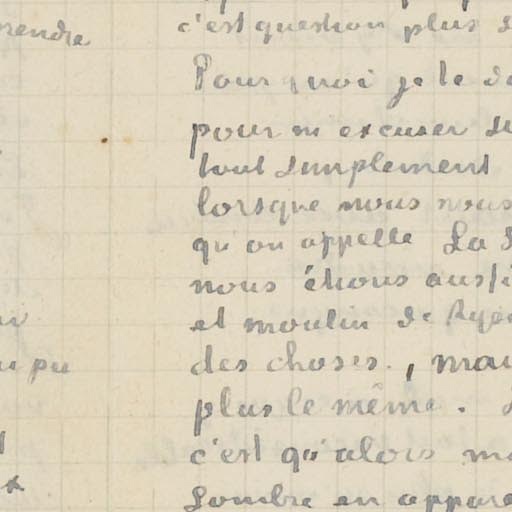 c'est question plus
Pourquoi je le
pour m excuser
tout simplement
lorsque nous nous
qu'on appelle La
nous étions aussi
et moulin de
des choses, mai
plus le même.
c'est qu'alors
sombre en appare